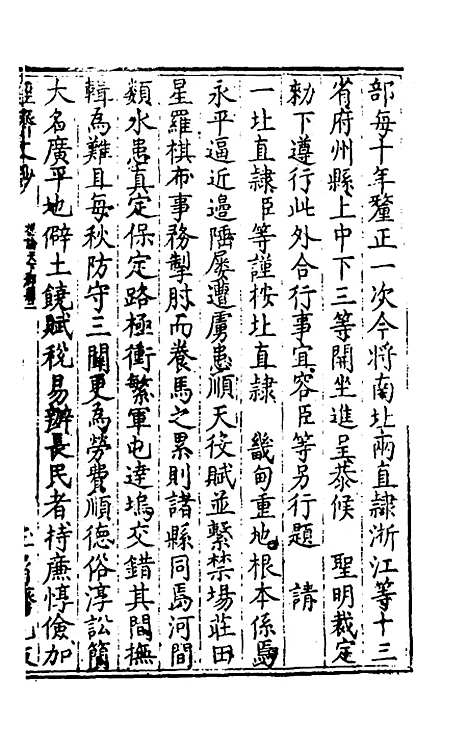 部每十年釐正一次今將南北兩直隸浙江等十三
省府州縣上中下三等開坐進呈恭候　聖明裁定
勑下遵行此外合行事宜容臣等另行題　請
一北直隸臣等謹按北直隸　畿甸重地根本係焉
永平逼近邊陲屢遭虜患順天役賦並繫禁場莊田
星羅棋布事務掣肘而養馬之累則諸縣同焉河間
類水患真定保定路極衝繁軍屯達塢交錯其間撫
輯為難且每秋防守三關更為勞費順德俗淳訟簡
大名廣平地僻土饒賦稅易辦長民者持廉惇儉加